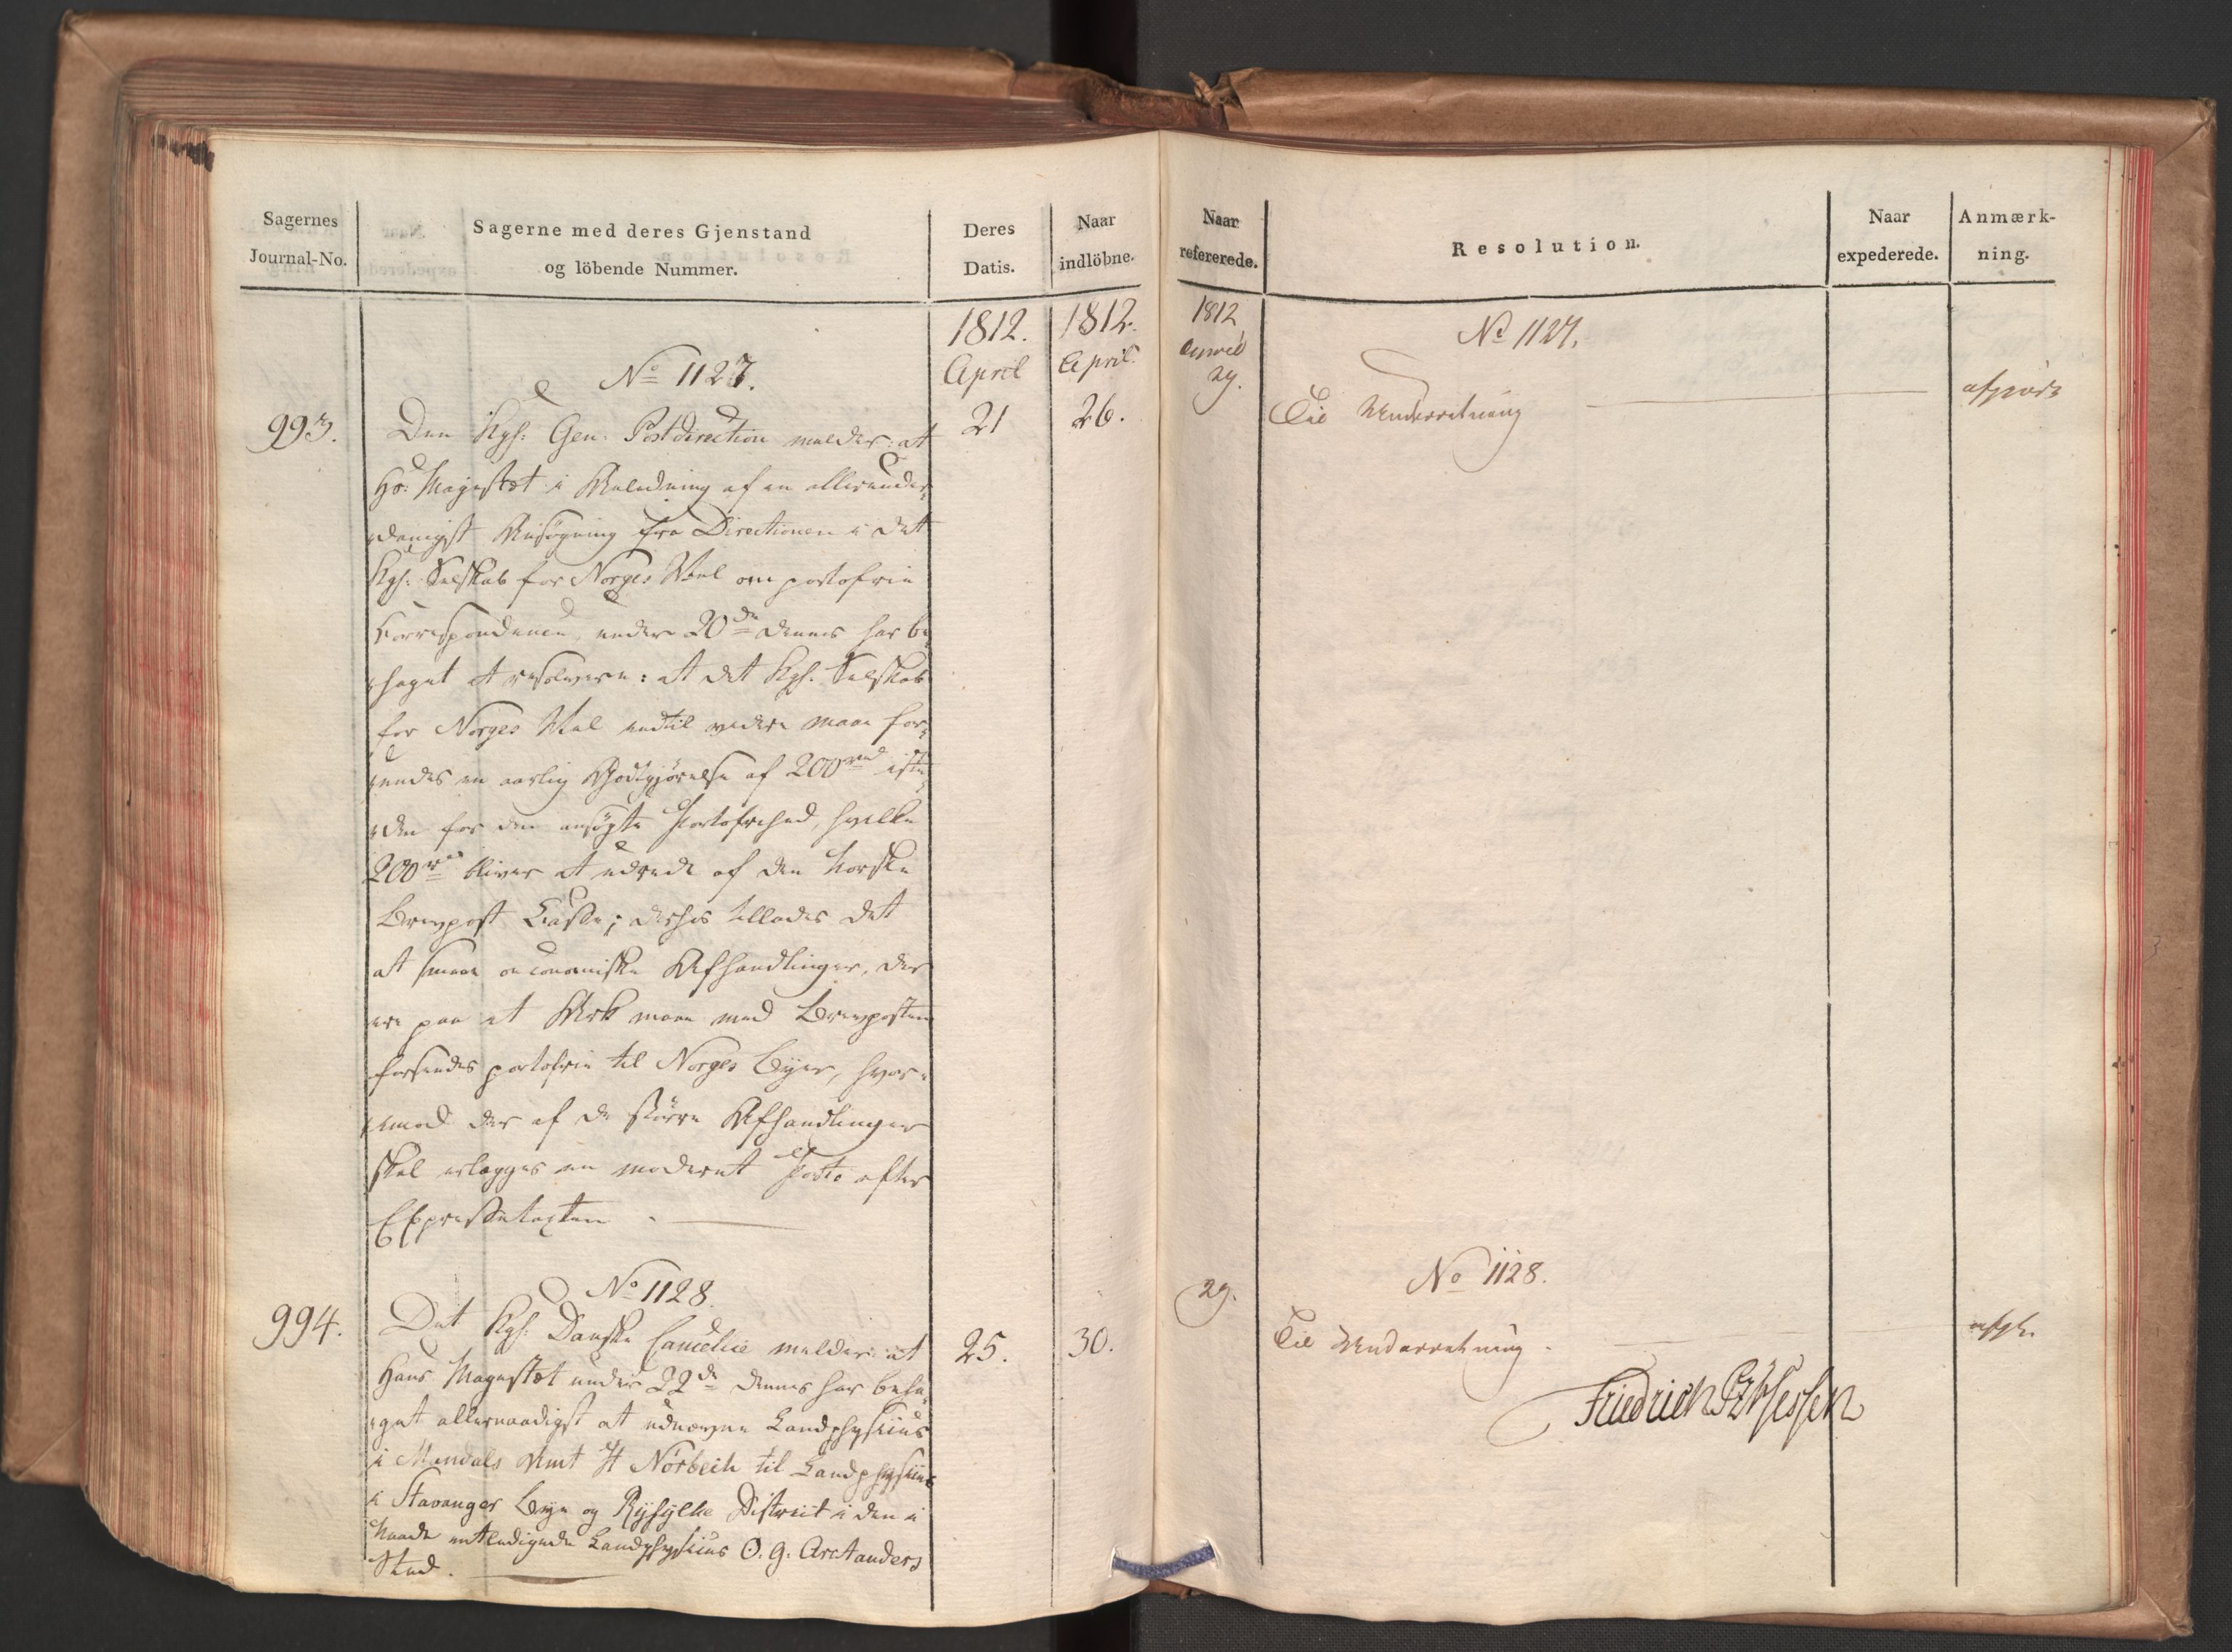 Sagernes
Journal-No.
Sagerne med deres Gjenstand
og löbende Nummer.
Deres
Datis.
Naar
indlöbne.
1812.
April
1812.
April.
No 1127.
993.
21
26.
Den Kgl: Gen: Postdirection melder: at
Hs: Majestæt i Anledning af en allerunder„
„danigst Ansøgning fra Directionen i det
Kgl: Selskab for Norges Vel om portofrie
Correspondence, under 20de dennes har be„
„haget at resolvere: at det Kgl. Selskab
for Norges Vel indtil videre maae for„
„undes en aarlig Godtgjörelse af 200 rd iste„
„den for den ansøgte Portofrihed, hvilke
200 rd bliver at udrede af den norske
Brevpost Casse; derhos tillades det
at smaae oeconomiske Afhandlinger, der
ere paa et Ark maae med Brevposten
forsendes portofrie til Norges Byer, hvor„
„imod der af de större Afhandlinger
skal erlægges en moderat Porto efter
Expressetaxten.
No 1128.
994.
25.
30.
Det Kgl. Danske Cancelie melder: at
Hans Majestæt under 22de dennes har beha„
„get allernaadigst at udnævne Landphysicus
i Mandals Amt H Nörbech til Landphysicus
i Stavanger Bye og Ryfylke District i den i
Naade entledigede Landphysicus O. G. Arctanders
Sted.
Naar
refererede.
Resolution.
Naar
expederede.
Anmærk-
ning.
1812
April
29.
No 1127.
Til Underretning
afgiort
No 1128.
29.
Til Underretning.
afgh.
Friedrich PzHessen